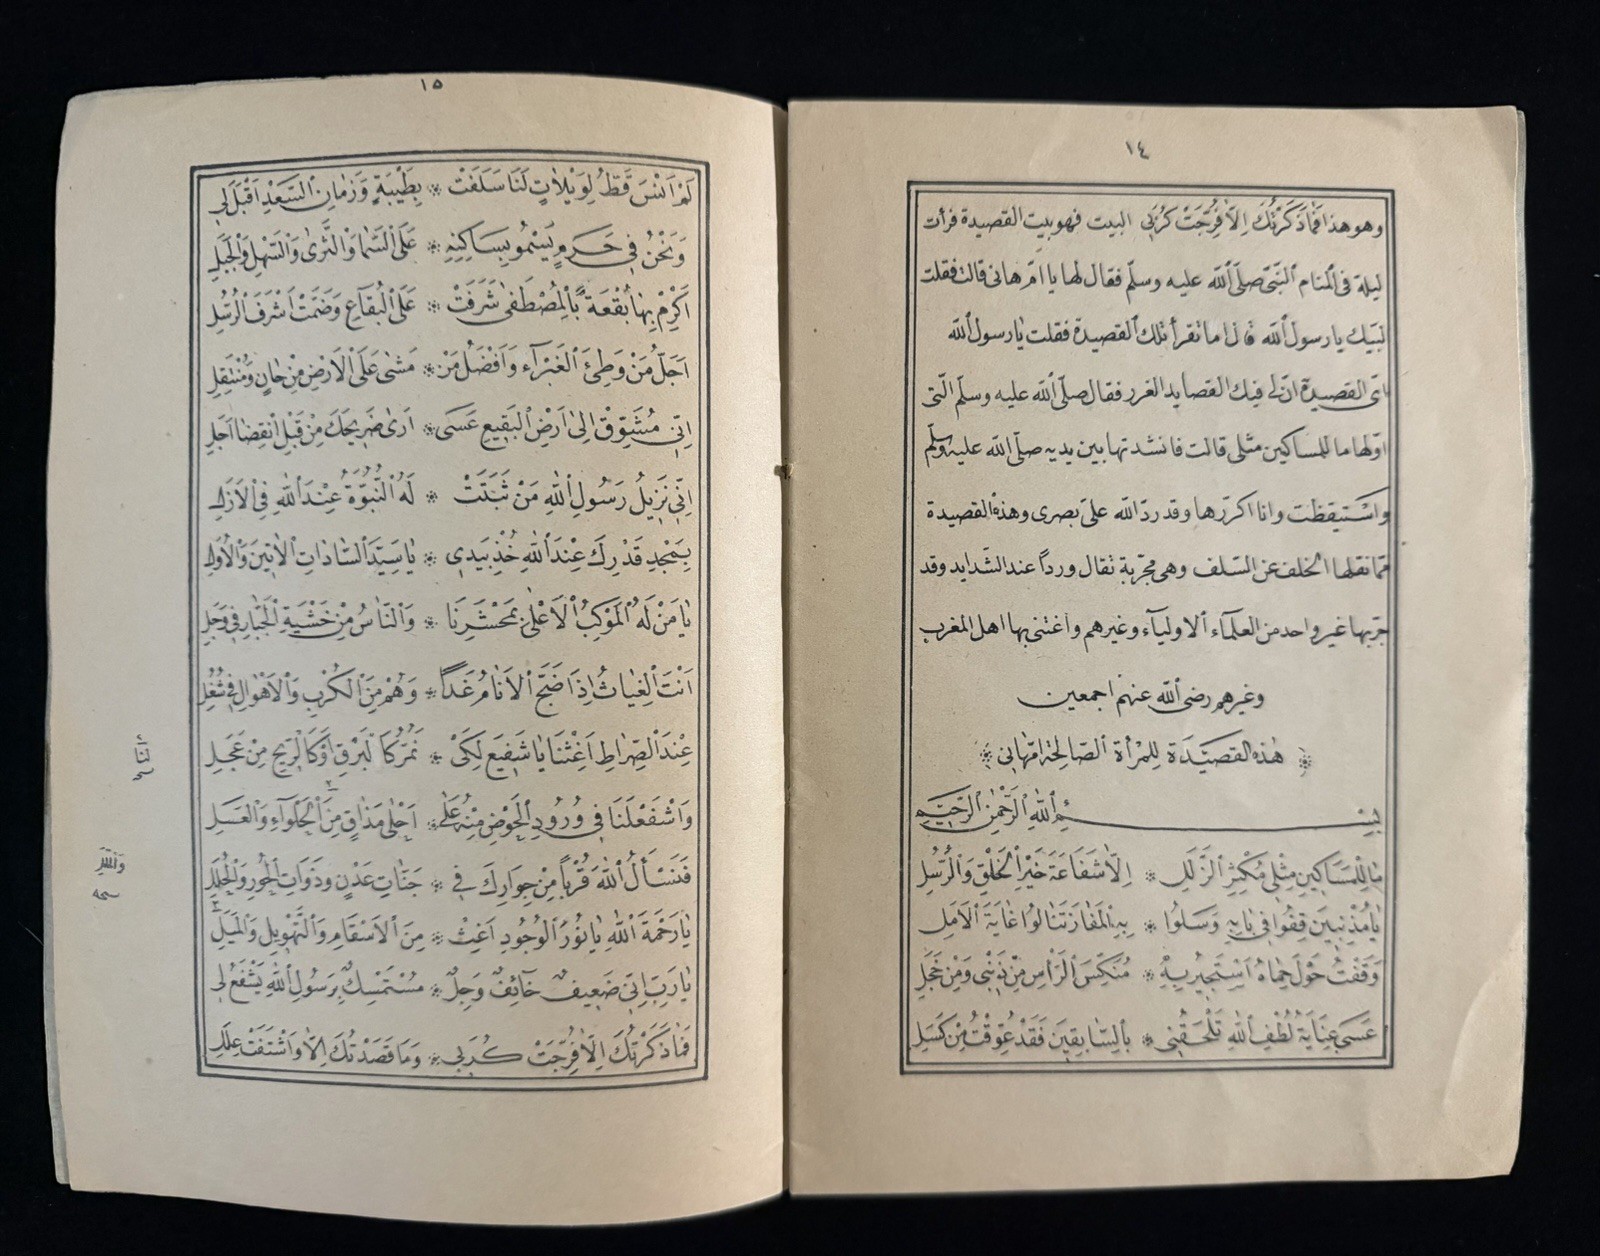 ١٤
وهو هذا فما ذكرتك الا فرّجت كربى البيت فهو بيت القصيدة فرأت
ليلة فى المنام النّبىّ صلّى الله عليه وسلّم فقال لها يا امّ هانى قالت فقلت
لبيك يا رسول الله قال ما تقرأ تلك القصيدة فقلت يا رسول الله
اىّ القصيدة انّ لى فيك القصايد الغرر فقال صلّى الله عليه وسلّم الّتى
اوّلها ما للمساكين مثلى قالت فانشدتها بين يديه صلّى الله عليه وسلّم
واستيقظت وانا اكرّرها وقد ردّ الله علىّ بصرى وهذه القصيدة
ممّا نقلها الخلف عن السّلف وهى مجرّبة تقال ورداً عند الشّدايد وقد
جرّبها غير واحد من العلمآء الاوليآء وغيرهم واغتنى بها اهل المغرب
وغيرهم رضى الله عنهم اجمعين
هٰذه القصيدة للمرأة الصّالحة امّ هانى
بسم الله الرّحمن الرّحيم
مَا لِلْمَسَاكِينِ مِثْلِى مُكْثِرِ الزَّلَلِ * اِلَّا شَفَاعَةَ خَيْرِ الْخَلْقِ وَالرُّسُلِ
يَا مُذْنِبِينَ قِفُوا فِى بَابِهِ وَسَلُوا * بِهِ الْمَفَازَ تَنَالُوا غَايَةَ الْاَمَلِ
وَقَفْتُ حَوْلَ حِمَاهُ اَسْتَجِيرُ بِهِ * مُنَكِّسَ الرَّأْسِ مِنْ ذَنْبِى وَمِنْ خَجَلِ
عَسَى عِنَايَةُ لُطْفِ اللهِ تَلْحَقُنِى * بِالسَّابِقِينَ فَقَدْ عُوِّقْتُ مِنْ كَسَلِ
١٥
لَمْ اَنْسَ قَطُّ لِوَيْلَاتٍ لَنَا سَلَفَتْ * بِطَيْبَةٍ وَزَمَانِ السَّعْدِ اَقْبَلَ لِى
وَنَحْنُ فِى حَرَمٍ يَسْمُو بِسَاكِنِهِ * عَلَى السَّمَا وَالثَّرَى وَالسَّهْلِ وَالْجَبَلِ
اَكْرِمْ بِهَا بُقْعَةً بِالْمُصْطَفَى شَرُفَتْ * عَلَى الْبِقَاعِ وَضَمَّتْ اَشْرَفَ الرُّسُلِ
اَجَلُّ مَنْ وَطِئَ الْغَبْرَآءَ وَاَفْضَلُ مَنْ * مَشَى عَلَى الْاَرْضِ مِنْ حَافٍ وَمُنْتَعِلِ
اِنِّى مُشَوَّقٌ اِلَى اَرْضِ الْبَقِيعِ عَسَى * اَرَى ضَرِيحَكَ مِنْ قَبْلِ انْقِضَا اَجَلِ
اِنِّى نَزِيلُ رَسُولِ اللهِ مَنْ ثَبَتَتْ * لَهُ النُّبُوَّةُ عِنْدَ اللهِ فِى الْاَزَلِ
بِمَجْدِ قَدْرِكَ عِنْدَ اللهِ خُذْ بِيَدِى * يَا سَيِّدَ السَّادَاتِ الْآتِينَ وَالْاُوَلِ
يَا مَنْ لَهُ الْمَوْكِبُ الْاَعْلَى بِمَحْشَرِنَا * وَالنَّاسُ مِنْ خَشْيَةِ الْجَبَّارِ فِى وَجَلِ
اَنْتَ الْغِيَاثُ اِذَا ضَجَّ الْاَنَامُ غَداً * وَهُمْ مِنَ الْكُرْبِ وَالْاَهْوَالِ فِى شُغُلِ
عِنْدَ الصِّرَاطِ اَغِثْنَا يَا شَفِيعُ لِكَىْ * نَمُرَّ كَالْبَرْقِ اَوْ كَالرِّيحِ مِنْ عَجَلِ
لَنَا صح
وَاشْفَعْ لَنَا فِى وُرُودِ الْحَوْضِ مِنْهُ عَلَى * اَحْلَى مَذَاقٍ مِنَ الْحَلْوَآءِ وَالْعَسَلِ
فَنَسْأَلُ اللهَ قُرْباً مِنْ جِوَارِكَ فِى * جَنَّاتِ عَدْنٍ وَذَوَاتِ الْحُورِ وَالْحُلَلِ
يَا رَحْمَةَ اللهِ يَا نُورَ الْوُجُودِ اَغِثْ * مِنَ الْاَسْقَامِ وَالتَّهْوِيلِ وَالْمَيَلِ
يَا رَبِّ اِنِّى ضَعِيفٌ خَآئِفٌ وَجِلٌ * مُسْتَمْسِكٌ بِرَسُولِ اللهِ يَشْفَعُ لِى
فَمَا ذَكَرْتُكَ اِلَّا فُرِّجَتْ كُرَبِى * وَمَا قَصَدْتُكَ اِلَّا وَاشْتَفَتْ عِلَلِ